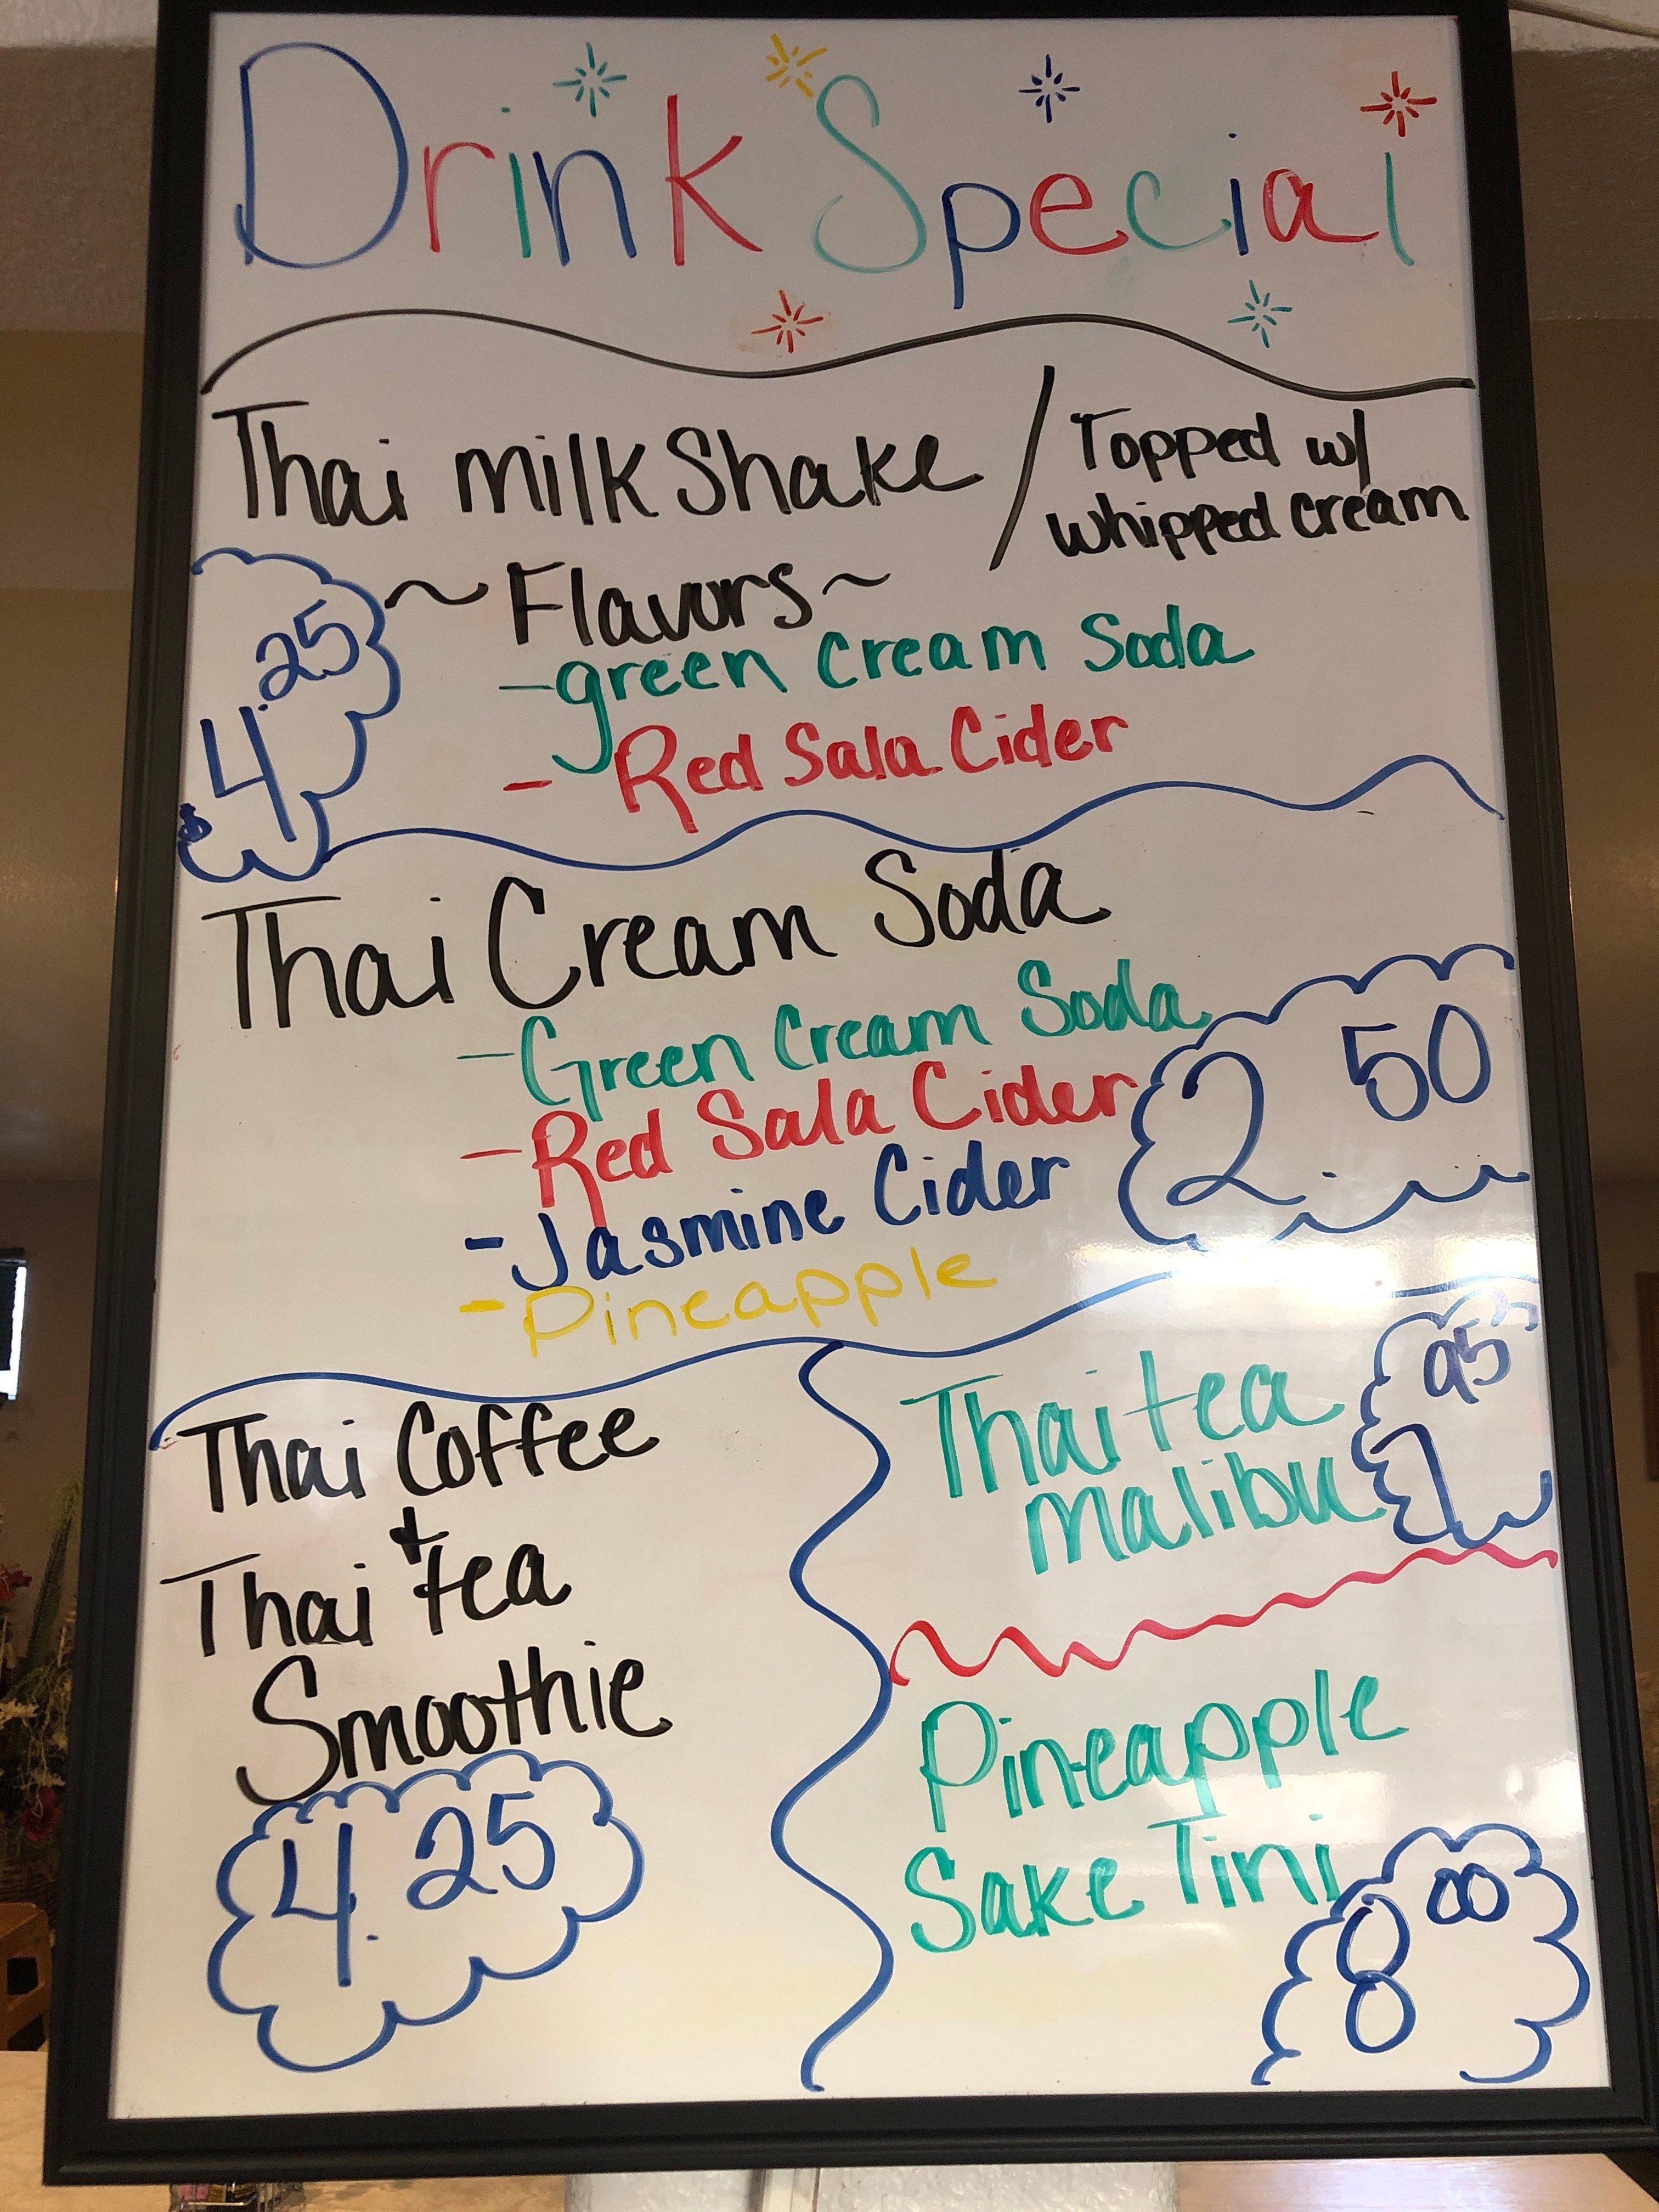 Drink Special
Thai milk Shake / Topped w/
whipped cream
~Flavors~
$4.25
-green cream Soda
- Red Sala Cider
Thai Cream Soda
-Green Cream Soda
-Red Sala Cider
2.50
-Jasmine Cider
-Pineapple
Thai Coffee
+
Thai tea
Smoothie
4.25
Thai tea
malibu
95
Pineapple
Sake Tini
8 00